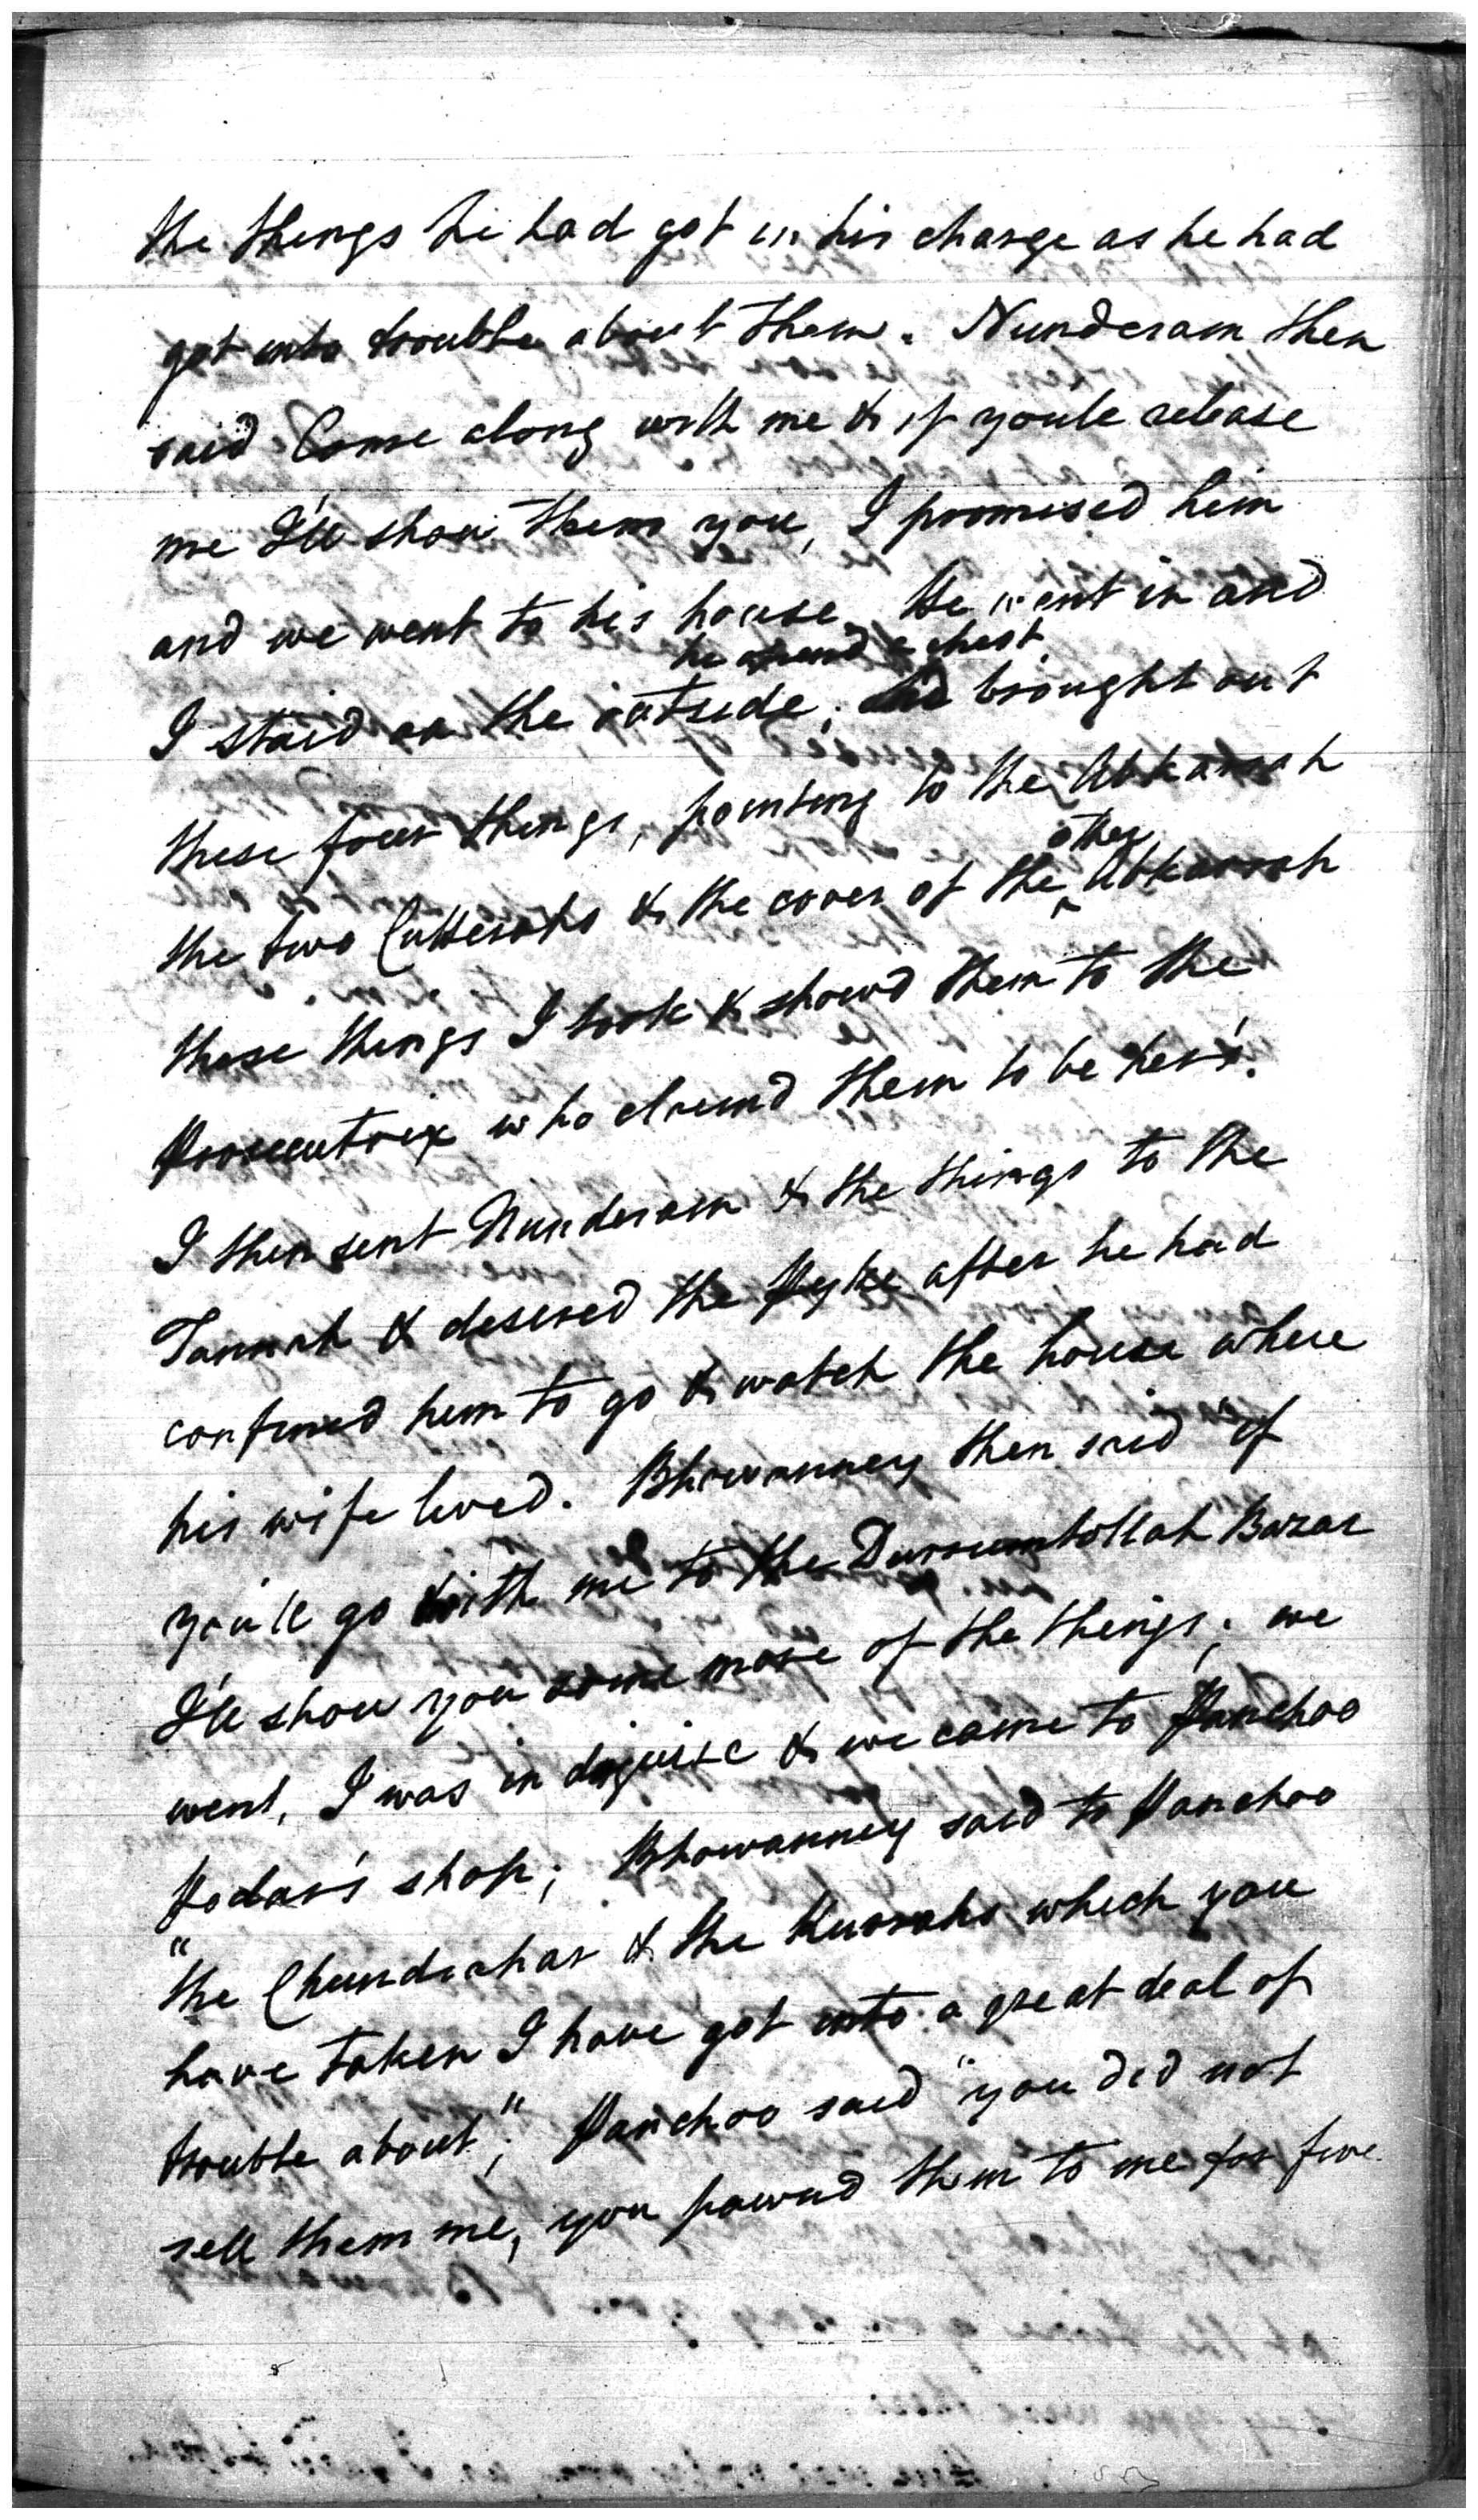 the things he had got in his charge as he had
got into trouble about them. Nunderam then
said Come along with me & if you'le release
me I'll shew them you, I promised him
and we went to his house. He went in and
he opened a chest
I staid on the outside; brought out
these four things, pointing to the Abkarrah
other
the two Cutterahs & the cover of the ^ Abkarrah
these things I took & showd them to the
Prosecutrix who claimd them to be her's.
I then sent Nunderam & the things to the
Tannah & desired the Pyke after he had
confined him to go & watch the house where
his wife lived. Bhowanney then said "if
you'le go with me to the Durrumtollah Bazar
I'le shew you some more of the things; we
went, I was in disguise & we came to Panchoo
Podar's shop; Bhowanney said to Panchoo
"the Chunderhar & the Kurrahs which you
have taken I have got into a great deal of
trouble about"; Panchoo said "you did not
sell them me, you pawnd them to me for five